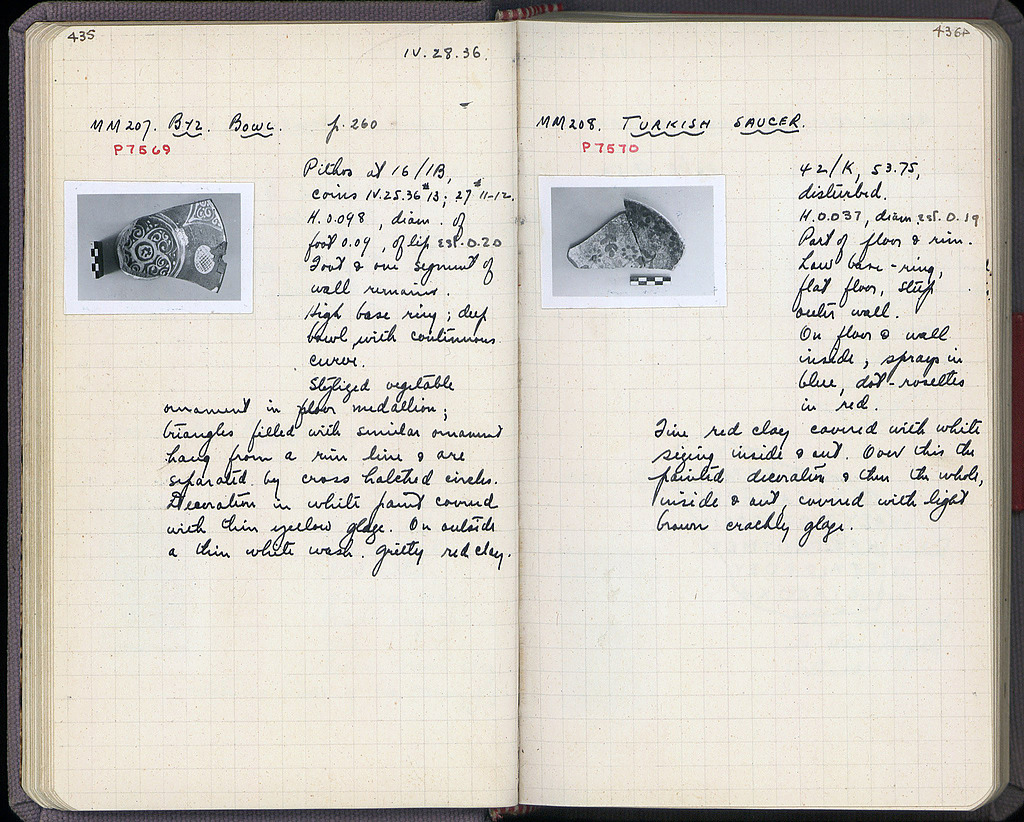 435
IV.28.36.
MM207. BYZ. BOWL. p. 260
P7569
Pithos at 16/IB,
coins IV.25.36 #13; 27 #11-12.
H. 0.098, diam. of
foot 0.09, of lip est. 0.20
Foot & one segment of
wall remains.
High base ring; deep
bowl with continuous
curve.
Stylized vegetable
ornament in floor medallion;
triangles filled with similar ornament
hang from a rim line & are
separated by cross hatched circles.
Decoration in white paint covered
with thin yellow glaze. On outside
a thin white wash. Gritty red clay.
436A
MM208. TURKISH SAUCER.
P7570
42/K, 53.75,
disturbed.
H. 0.037, diam. est. 0.19
Part of floor & rim.
Low base-ring,
flat floor, steep
outer wall.
On floor & wall
inside, sprays in
blue, dot-rosettes
in red.
Fine red clay covered with white
sizing inside & out. Over this the
painted decoration & then the whole,
inside & out, covered with light
brown crackly glaze.